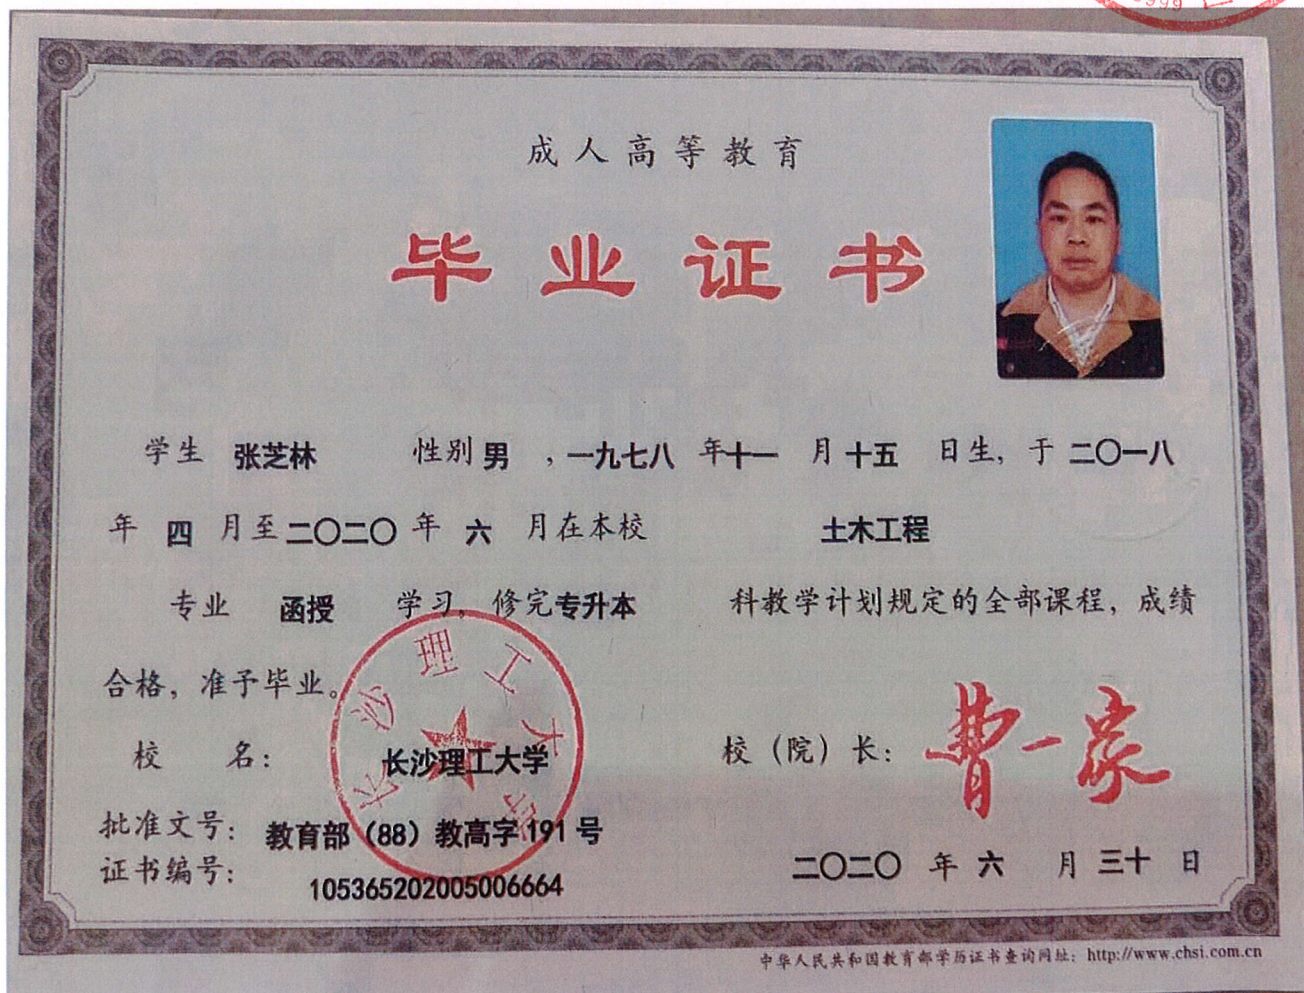 999
成人高等教育
毕业证书
学生 张芝林 性别 男 ，一九七八 年 十一 月 十五 日生，于 二〇一八
年 四 月至 二〇二〇 年 六 月在本校 土木工程
专业 函授 学习，修完 专升本 科教学计划规定的全部课程，成绩
合格，准予毕业。
长沙理工大学
校 名： 长沙理工大学 校（院）长： 曹一家
批准文号： 教育部（88）教高字 191 号
证书编号： 105365202005006664 二〇二〇 年 六 月 三十 日
中华人民共和国教育部学历证书查询网址：http://www.chsi.com.cn